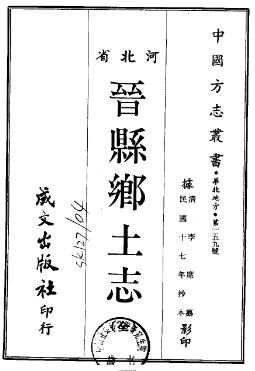 中國方志叢書·華北地方·第一五九號
據
清李席纂
民國十七年抄本
影印
河北省
晉縣鄉土志
(全)
成文出版社印行